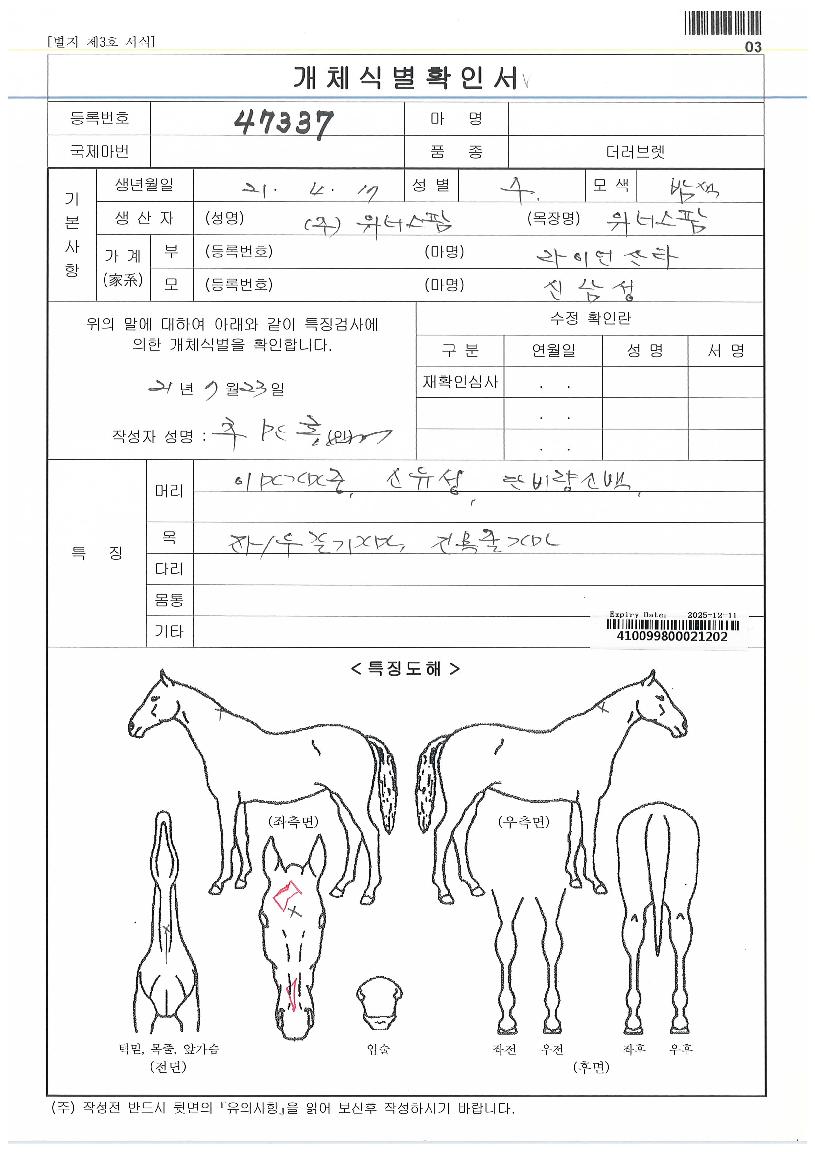 [별지 제3호 서식]
03
개체식별확인서
등록번호 47337 마 명
국제마번 품 종 더러브렛
기본사항
생년월일 21. 4. 17 성별 수. 모색 밤색
생산자 (성명) (주) 위너스팜 (목장명) 위너스팜
가계(家系) 부 (등록번호) (마명) 라이언산타
모 (등록번호) (마명) 신삼성
위의 말에 대하여 아래와 같이 특징검사에
의한 개체식별을 확인합니다.
21년 7월 23일
작성자 성명 : (인)
수정 확인란
구 분 연월일 성 명 서 명
재확인심사 . .
. .
. .
특 징
머리 유성, 비량소백,
목 좌/우
다리
몸통
기타
Expiry Date: 2025-12-11
410099800021202
< 특징도해 >
(좌측면) (우측면)
턱밑, 목줄, 앞가슴 입술 좌전 우전 좌후 우후
(전면) (후면)
(주) 작성전 반드시 뒷면의 『유의사항』을 읽어 보신후 작성하시기 바랍니다.